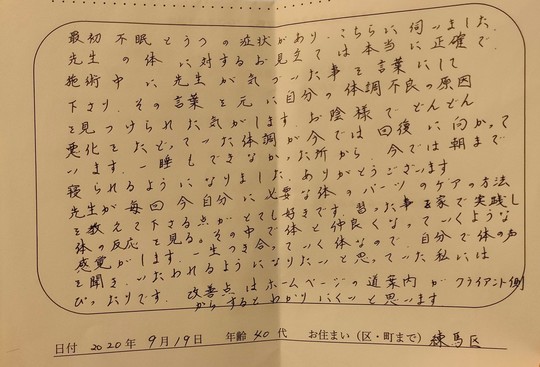 最初 不眠とうつの症状があり、こちらに伺いました。
先生の体に対するお見立ては本当に正確で、
施術中に先生が気づいた事を言葉にして
下さり、その言葉を元に自分の体調不良の原因
を見つけられた気がします。お陰様でどんどん
悪化をたどっていた体調が今では回後に向かって
います。一睡もできなかった所から、今では朝まで
寝られるようになりました。ありがとうございます
先生が毎回今自分に必要な体のパーツのケアの方法
を教えて下さる点がとても好きです。習った事を家で実践し
体の反応を見る。その中で体と仲良くなっていくような
感覚がします。一生つき合っていく体なので、自分で体の声
を聞き、いたわれるようになりたいと思っていた私には
ぴったりです。 改善点はホームページの道案内がクライアント側
からするとわかりにくいと思います
日付 2020年 9月19日 年齢 40代 お住まい（区・町まで） 練馬区